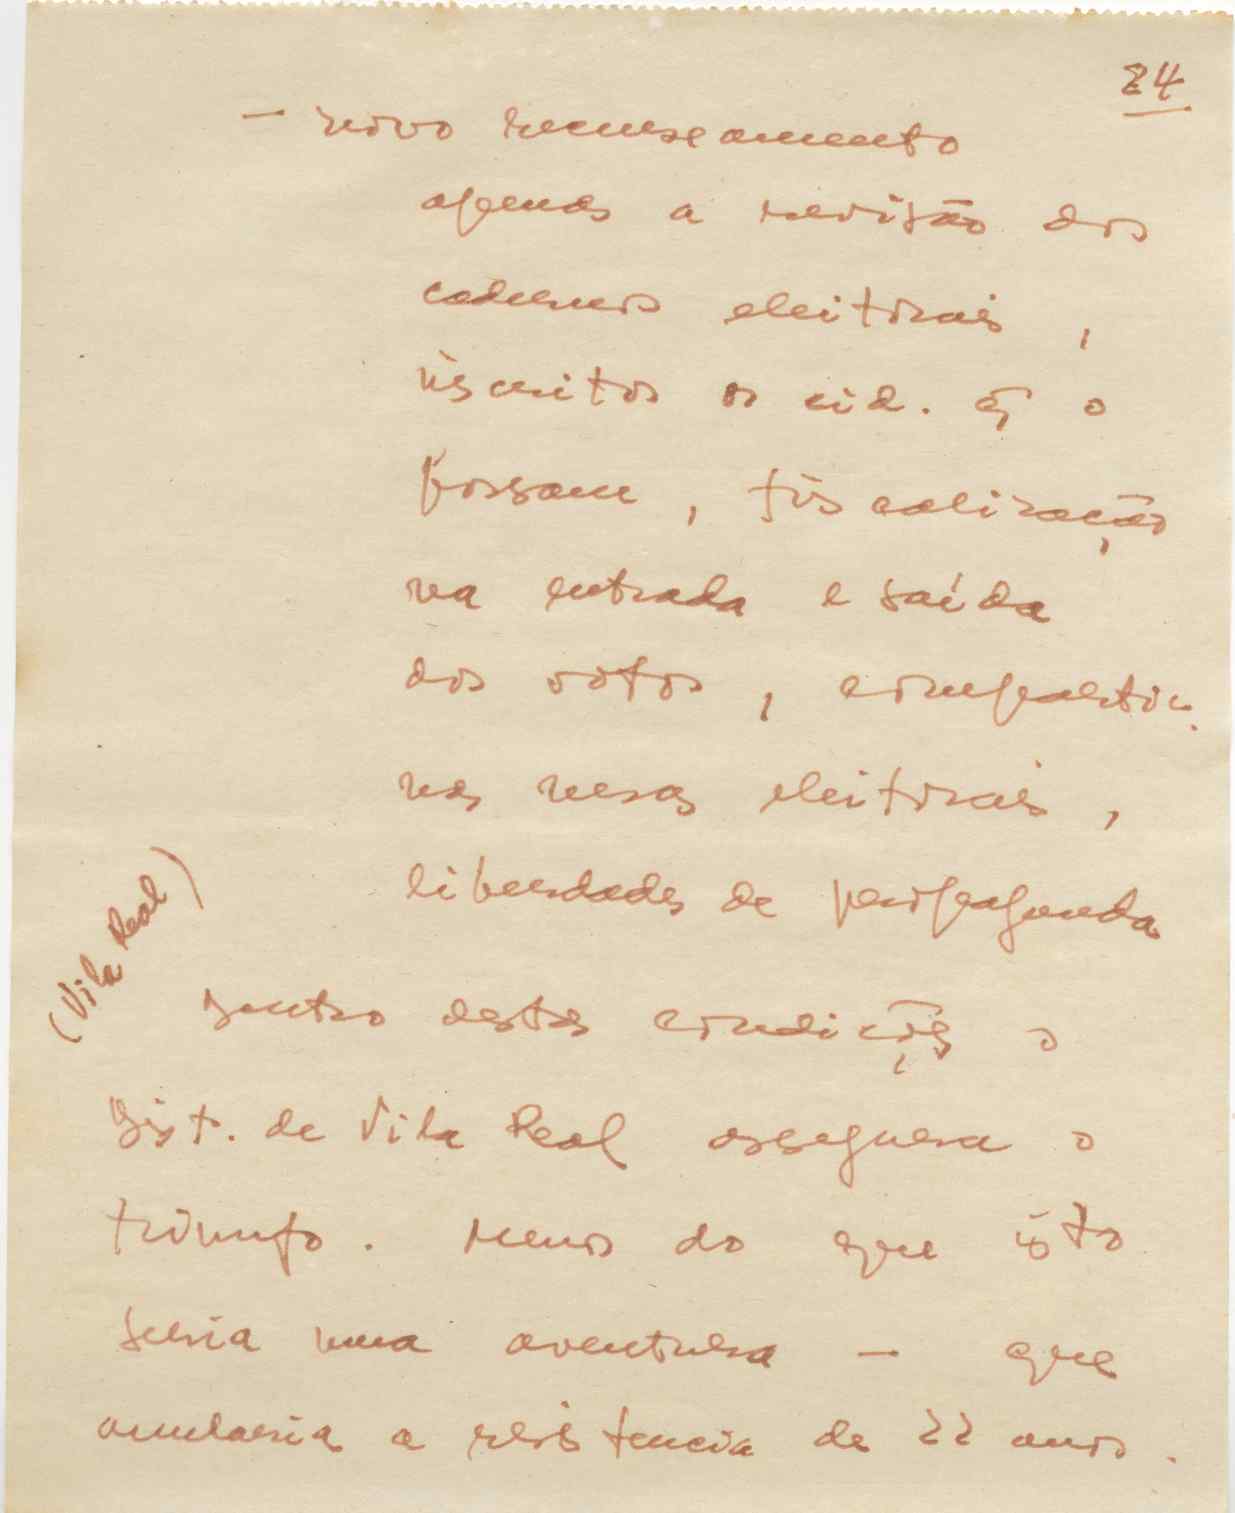 24
— novo recenseamento
apenas a revisão dos
cadernos eleitorais,
inscritos os cid. q̃ o
possam, fiscalização
na entrada e saída
dos votos, compartic.
nas mesas eleitorais,
liberdades de propaganda
(Vila Real)
Dentro destas condições o
Dist. de Vila Real assegura o
triunfo. Menos do que isto
seria uma aventura — que
anularia a resistencia de 22 anos.